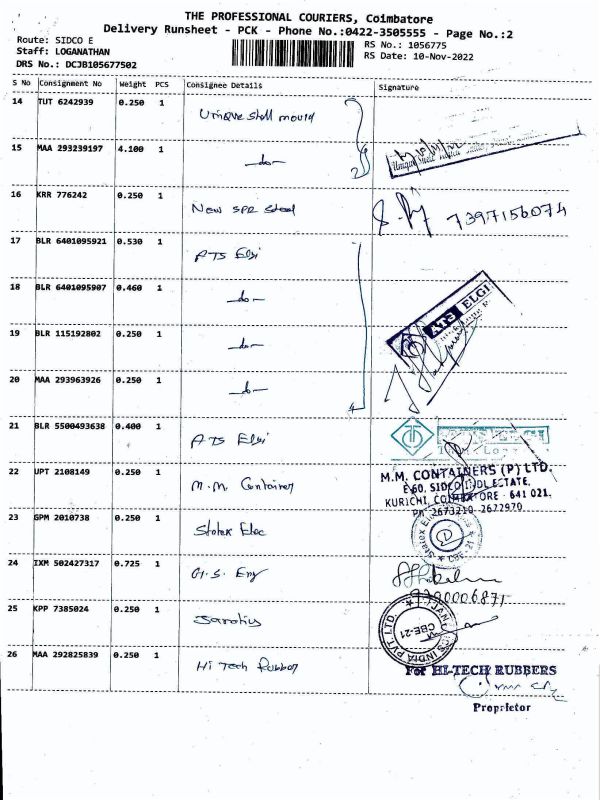 THE PROFESSIONAL COURIERS, Coimbatore
Delivery Runsheet - PCK - Phone No.:0422-3505555 - Page No.:2
Route: SIDCO E
RS No.: 1056775
Staff: LOGANATHAN
RS Date: 10-Nov-2022
DRS No.: DCJB105677502
S No Consignment No Weight PCS Consignee Details Signature
14 TUT 6242939 0.250 1 Unique Shell mould
15 MAA 293239197 4.100 1 -do-
2
16 KRR 776242 0.250 1 New SPR Steel 7397156074
17 BLR 6401095921 0.530 1 ATS Elgi
18 BLR 6401095907 0.460 1 -do-
ATS ELGI
19 BLR 115192802 0.250 1 -do-
20 MAA 293963926 0.250 1 -do-
4
21 BLR 5500493638 0.400 1 ATS Elgi
22 UPT 2108149 0.250 1 M.M. Container
M.M. CONTAINERS (P) LTD.
E-60, SIDCO INDL ESTATE,
KURICHI, COIMBATORE - 641 021.
Ph: 2673210, 2672970
23 GPM 2010738 0.250 1 Statex Elec
CBE-21
24 IXM 502427317 0.725 1 G.S. Eng
9790006871
25 KPP 7385024 0.250 1
INDIA PVT LTD.
CBE-21
26 MAA 292825839 0.250 1 Hi Tech Rubber
For HI-TECH RUBBERS
Proprietor